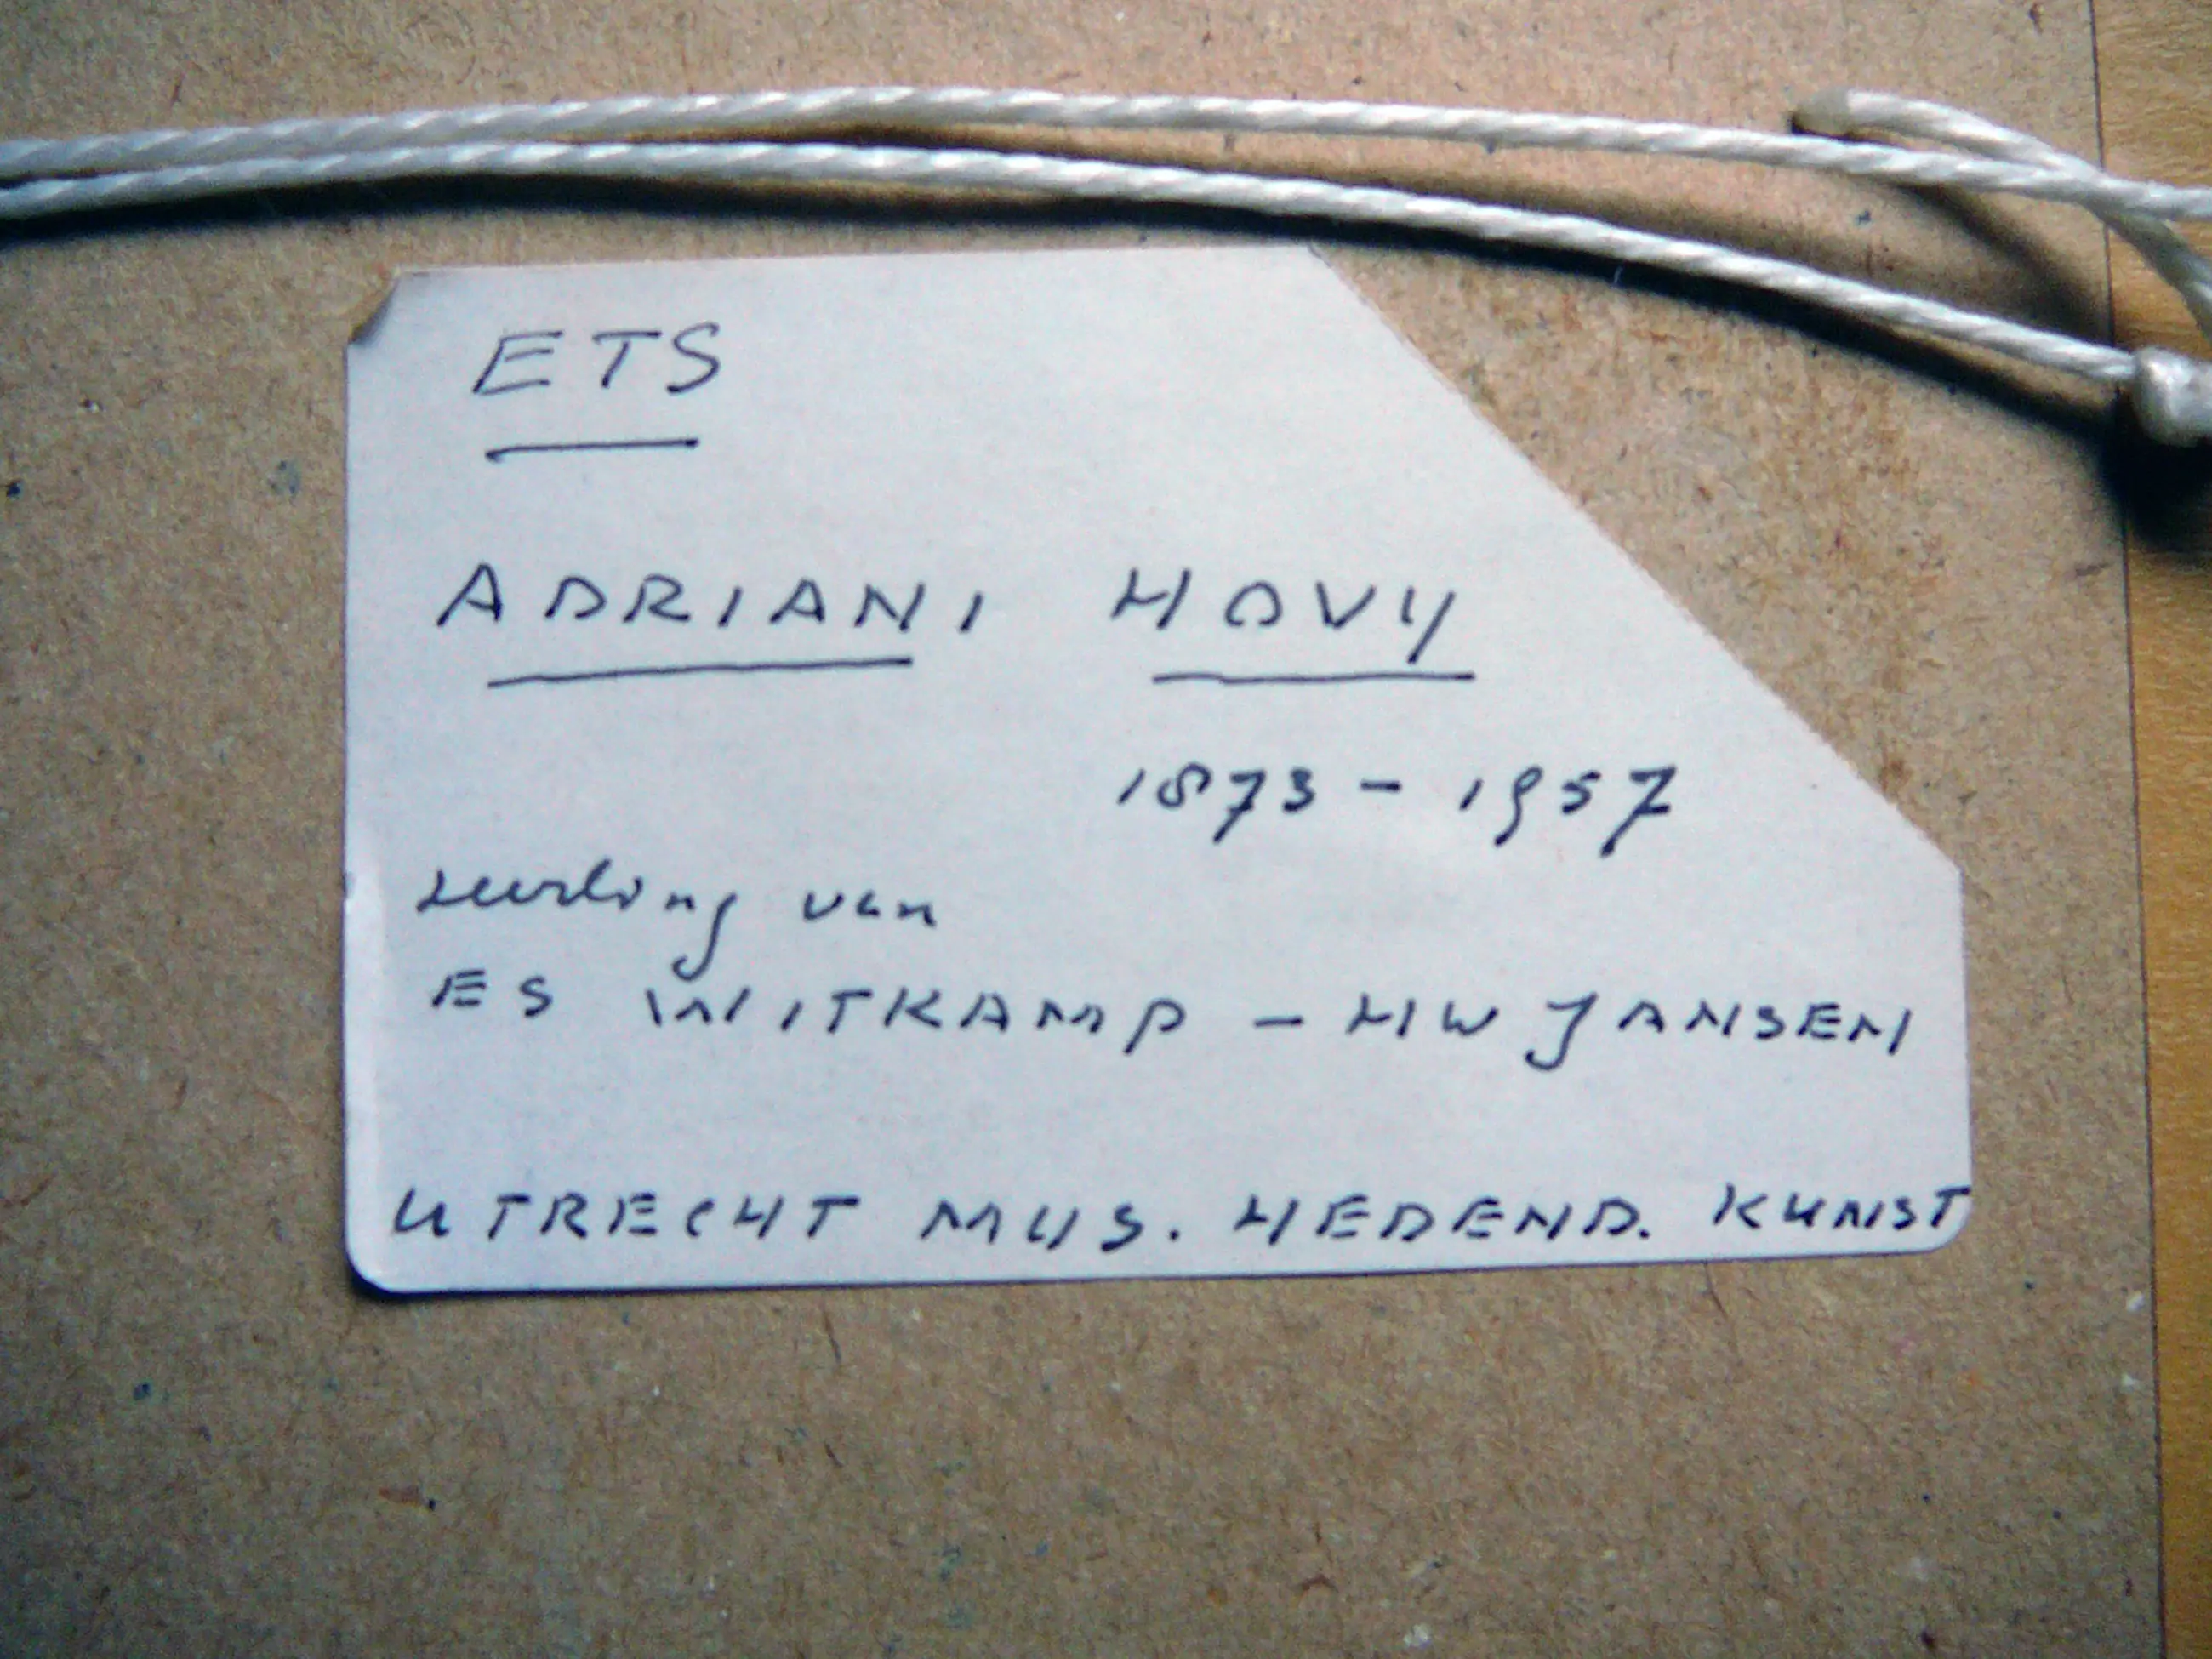 ETS
ADRIANI HOVY
1873 - 1957
Leerling van
ES WITKAMP - HW JANSEN
UTRECHT MUS. HEDEND. KUNST